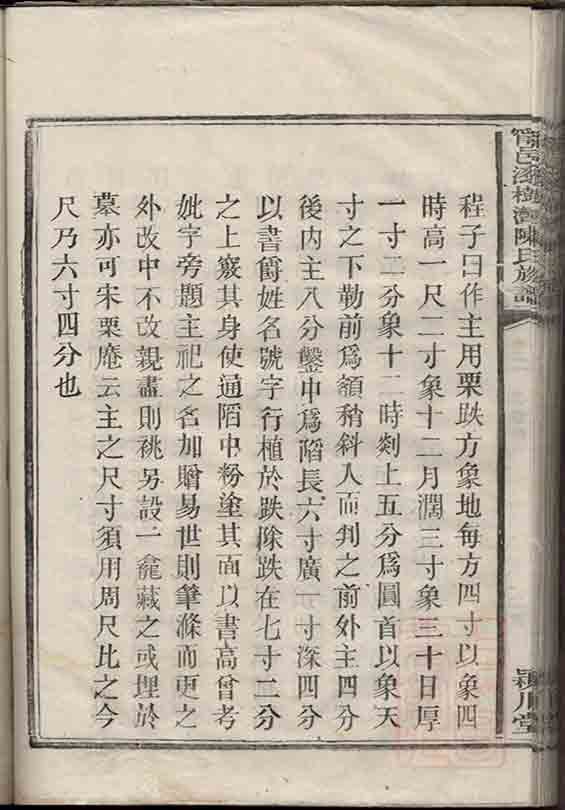 甯邑漆樹灣陳氏族譜
潁川堂
程子曰作主用栗趺方象地每方四寸以象四
時高一尺二寸象十二月濶三寸象三十日厚
一寸二分象十二時剡上五分爲圓首以象天
寸之下勒前爲額稍斜入而判之前外主四分
後內主八分鑿中爲䧟長六寸廣一寸深四分
以書爵姓名號字行植於趺除趺在七寸二分
之上竅其身使通䧟中粉塗其面以書高曾考
妣字旁題主祀之名加贈易世則筆滌而更之
外改中不改親盡則祧另設一龕藏之或埋於
墓亦可宋栗庵云主之尺寸須用周尺比之今
尺乃六寸四分也